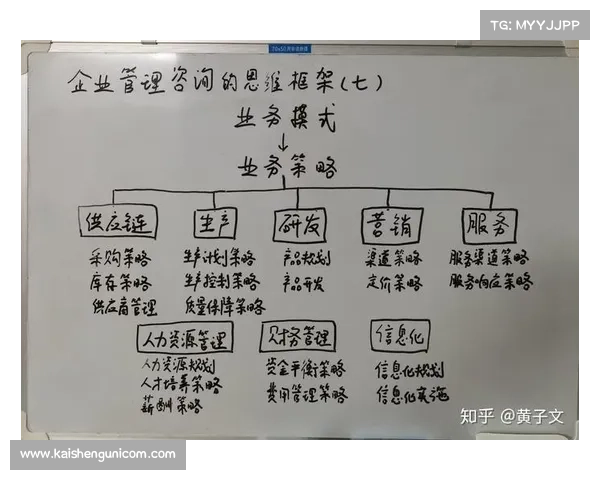 TG: MYYJJPP
企业管理咨询的思维框架(七)
业务模式
↓
业务策略
供应链 生产 研发 营销 服务
采购策略 生产计划策略 产品规划 渠道策略 服务渠道策略
库存策略 生产控制策略 产品开发 定价策略 服务响应策略
供应商管理 质量保障策略
人力资源管理 财务管理 信息化
人力资源规划 资金平衡策略 信息化规划
人才培养策略 费用管理策略 信息化实施
薪酬策略
知乎 @黄子文
www.kaishengunicom.com